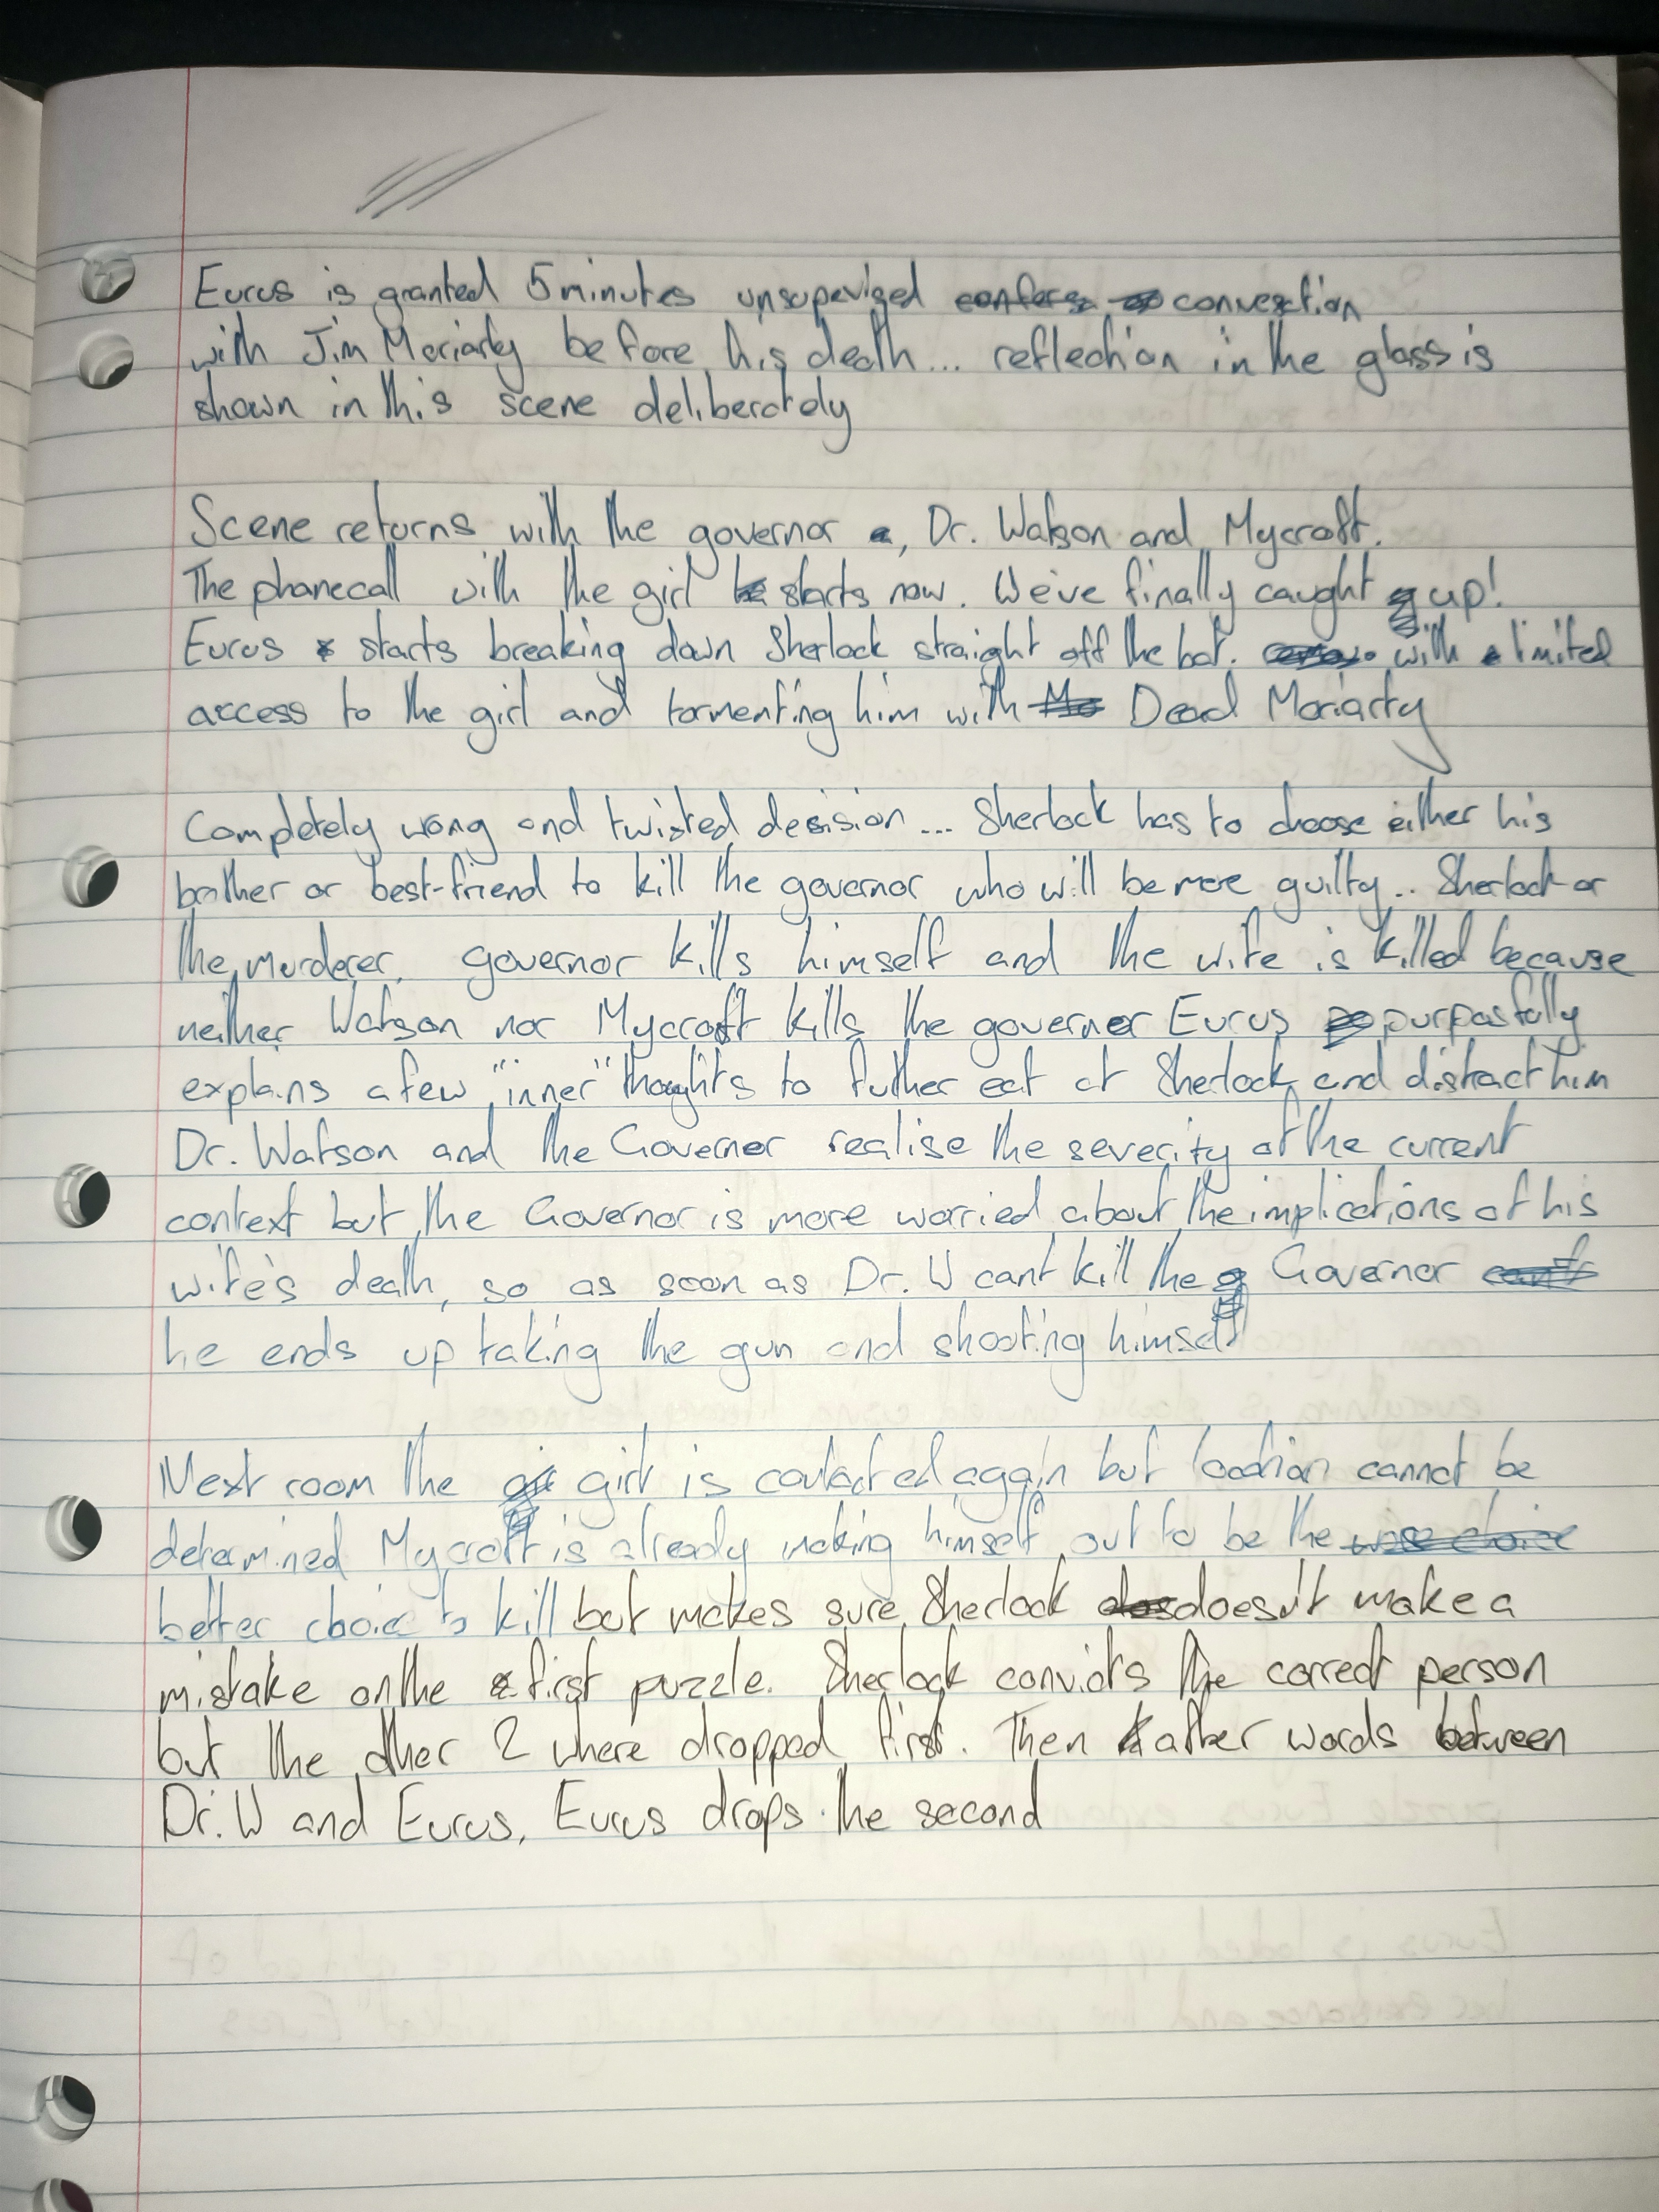 Eurus is granted 5 minutes unsupevised convesction
with Jim Moriarty before his death... reflection in the glass is
shown in this scene deliberately
Scene returns with the governor , Dr. Watson and Mycroft.
The phonecall with the girl starts now. We've finally caught up!
Eurus starts breaking down Sherlock straight off the bat. with limited
access to the girl and tormenting him with Dead Moriarty
Completely wrong and twisted decision... Sherlock has to choose either his
brother or best-friend to kill the governor who will be more guilty.. Sherlock or
the murderer. governor kills himself and the wife is killed because
neither Watson nor Mycroft kills the governor Eurus purposfully
explains a few "inner" thoughts to futher eat at Sherlock and distract him
Dr. Watson and the Governor realise the severity of the current
context but the Governor is more worried about the implications of his
wife's death, so as soon as Dr. W cant kill the Governor
he ends up taking the gun and shooting himself
Next room the girl is contacted again but location cannot be
determined Mycroft is already making himself out to be the
better choice to kill but makes sure Sherlock doesn't make a
mistake on the first puzzle. Sherlock convicts the correct person
but the other 2 where dropped first. Then after words between
Dr. W and Eurus, Eurus drops the second